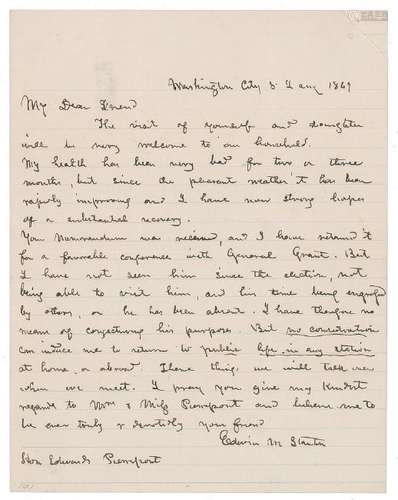 Washington City 3 Jany 1869
My Dear Friend
The visit of yourself and daughter
will be very welcome to our household.
My health has been very bad for two or three
months, but since the pleasant weather it has been
rapidly improving and I have now strong hopes
of a substantial recovery.
Your Memorandum was received, and I have retained it
for a favorable conference with General Grant. But
I have not seen him since the election, not
being able to visit him, and his time being engrossed
by others, or he has been absent. I have therefore no
means of conjecturing his purposes. But no consideration
can induce me to return to public life, in any station
at home or abroad. These things we will talk over
when we meet. I pray you give my kindest
regards to Mrs & Miss Pierrepont and believe me to
be ever truly & devotedly your friend
Edwin M Stanton
Hon Edwards Pierrepont